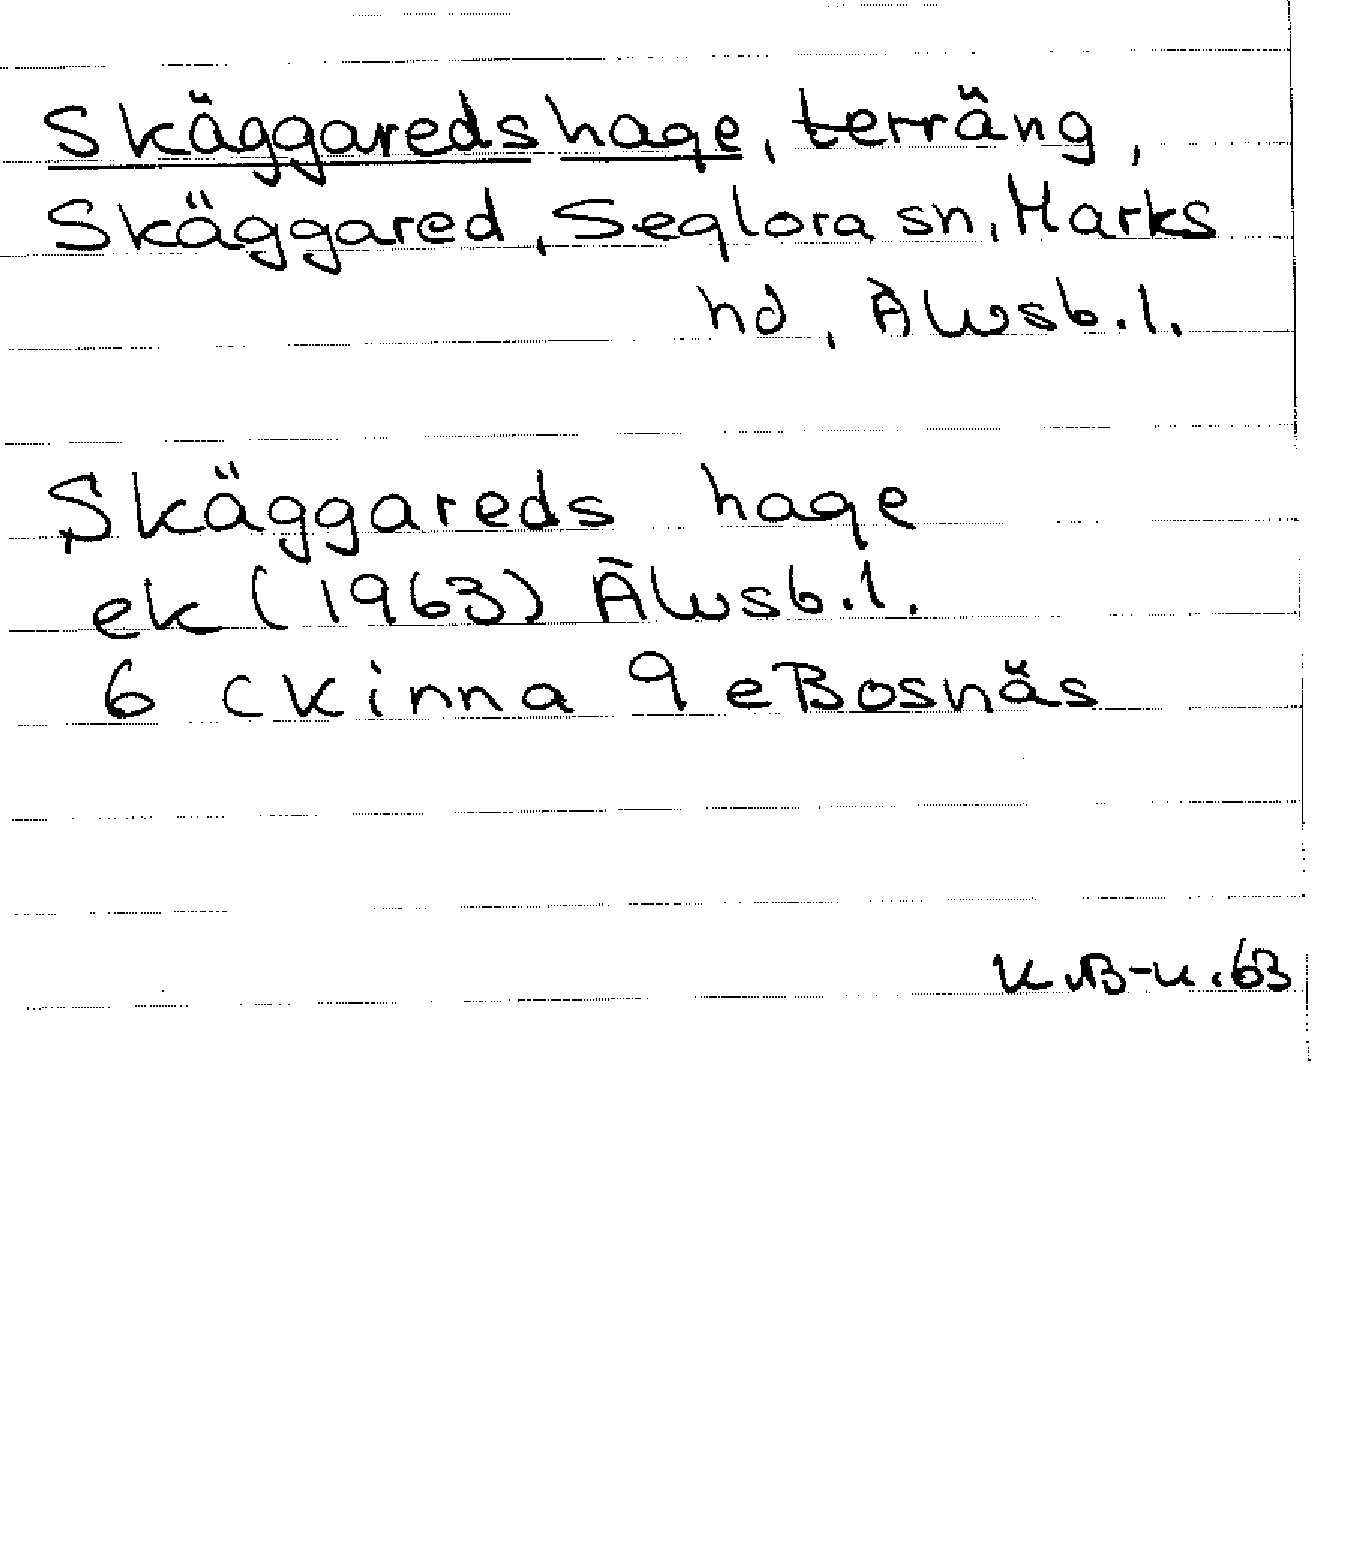 Skäggareds hage, terräng,
Skäggared, Seglora sn, Marks
hd, Älvsb.l.
Skäggareds hage
ek (1963) Älvsb.l.
6 C Kinna 9 e Bosnäs
K.B-K.63